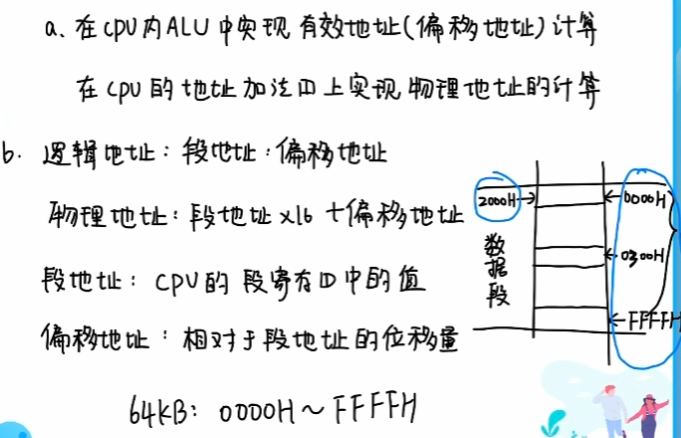 a、在CPU内ALU中实现有效地址(偏移地址)计算
在CPU的地址加法四上实现物理地址的计算
b. 逻辑地址：段地址：偏移地址
物理地址：段地址×16 十偏移地址
段地址： CPU的段寄存四中的值
偏移地址：相对于段地址的位移量
64KB: 0000H～FFFFH
2000H
0000H
0300H
FFFFH
数据段